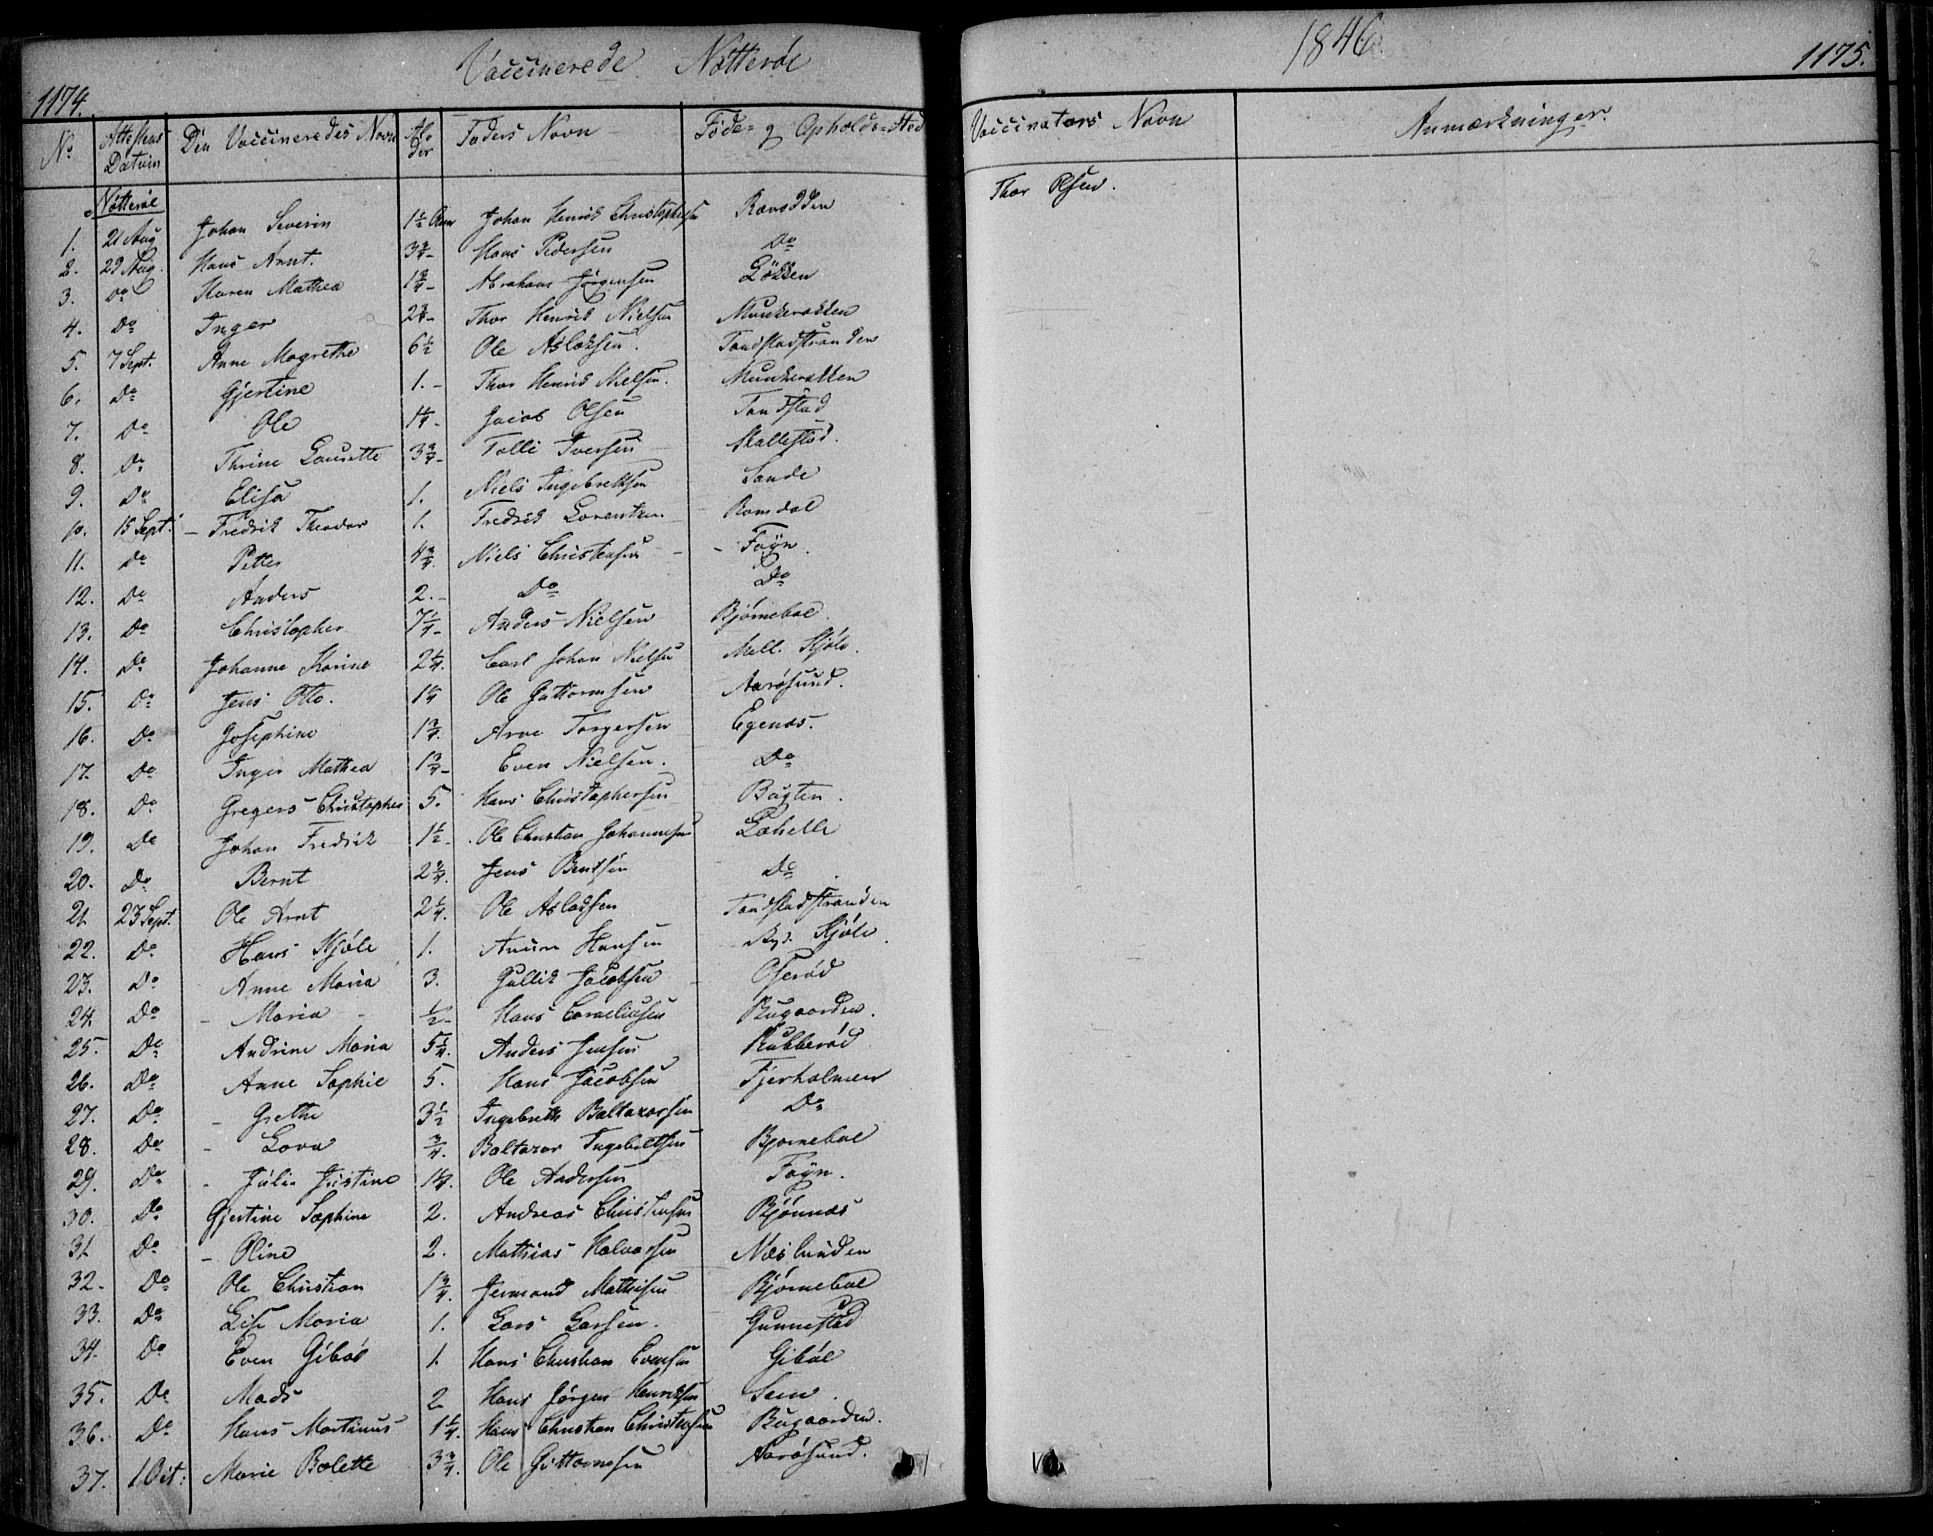 Vaccinerede Nøtterøe 1846
1174. 1175.
No. Attestens Datum Den Vaccineredes Navn Alder Faders Navn Føde- og Opholds-Sted Vaccinators Navn Anmærkninger.
Nøtterøe
1. 21 Aug Johan Severin 1½ Johan Henrik Christophersen Ravodden Thor Olsen.
2. 29 Aug. Hans Arnt. 3¾ Hans Pedersen Do
3. Do Karen Mathea 1¾ Abraham Jørgensen Løkken
4. Do Inger 2¾ Thor Henrik Nielsen Munkerekken
5. 7 Sept. Anne Magrethe 6½ Ole Aslaksen. Tandstadstranden
6. Do Gjertine 1. Thor Henrik Nielsen. Munkerekken
7. Do Ole 1¼ Jacob Olsen Tandstad
8. Do Thrine Laurette 3¾ Tolle Iversen Skallestad.
9. Do Elisa 1. Niels Ingebretsen Sande
10. 15 Sept. Fredrik Theodor 1. Fredrik Lorentzen Ramdal
11. Do Petter 4¾ Niels Christensen Føyn.
12. Do Anders 2. Do Do
13. Do Christopher 7¼ Anders Nielsen Bjørneboe.
14. Do Johanne Karine 2¼. Carl Johan Nielsen Mell. Kjøle.
15. Do Jens Otto. 1¼ Ole Guttormsen Aarøsund.
16. Do Josephine 1¾. Arve Torgersen Egenæs.
17. Do Inger Mathea 1¾ Even Nielsen. Do
18. Do Gregers Christopher 5. Hans Christophersen Bugten.
19. Do Johan Fredrik 1½ Ole Christian Johannesen Lahelle
20. Do Bernt 2¾. Jens Bentsen Do
21. 23 Sept. Ole Arnt 2¼. Ole Aslaksen Tandstadstranden
22. Do Hans Kjøle 1. Hansen Kjøle.
23. Do Anne Maria 3. Gullik Jacobsen Oserød
24. Do Maria ½ Hans Corneliusen Bugaarden.
25. Do Andrine Maria 5¼. Anders Jensen Rubberød
26. Do Anne Sophie 5. Hans Jacobsen Fjerholmen
27. Do Grethe 3½ Ingebreth Baltazarsen Do
28. Do Lova ¾. Baltazar Ingebretsen Bjørneboe
29. Do Julie Justine 1¼. Ole Andersen Føyn.
30. Do Gjertine Sophine 2. Andreas Christensen Bjønnæs
31. Do Oline 2. Mathias Halvorsen Næslunden
32. Do Ole Christian 1¾. Jermand Mathisen Bjørneboe
33. Do Lise Maria 1. Lars Larsen. Gunnestad
34. Do Even Gibøe 1. Hans Christian Evensen Gibøe
35. Do Mads 2 Hans Jørgen Henriksen Sem.
36. Do Hans Martinus 1¼. Hans Christian Christensen Bugaarden.
37. 1 Oct: Marie Bolette 3¾. Ole Guttormsen Aarøsund.